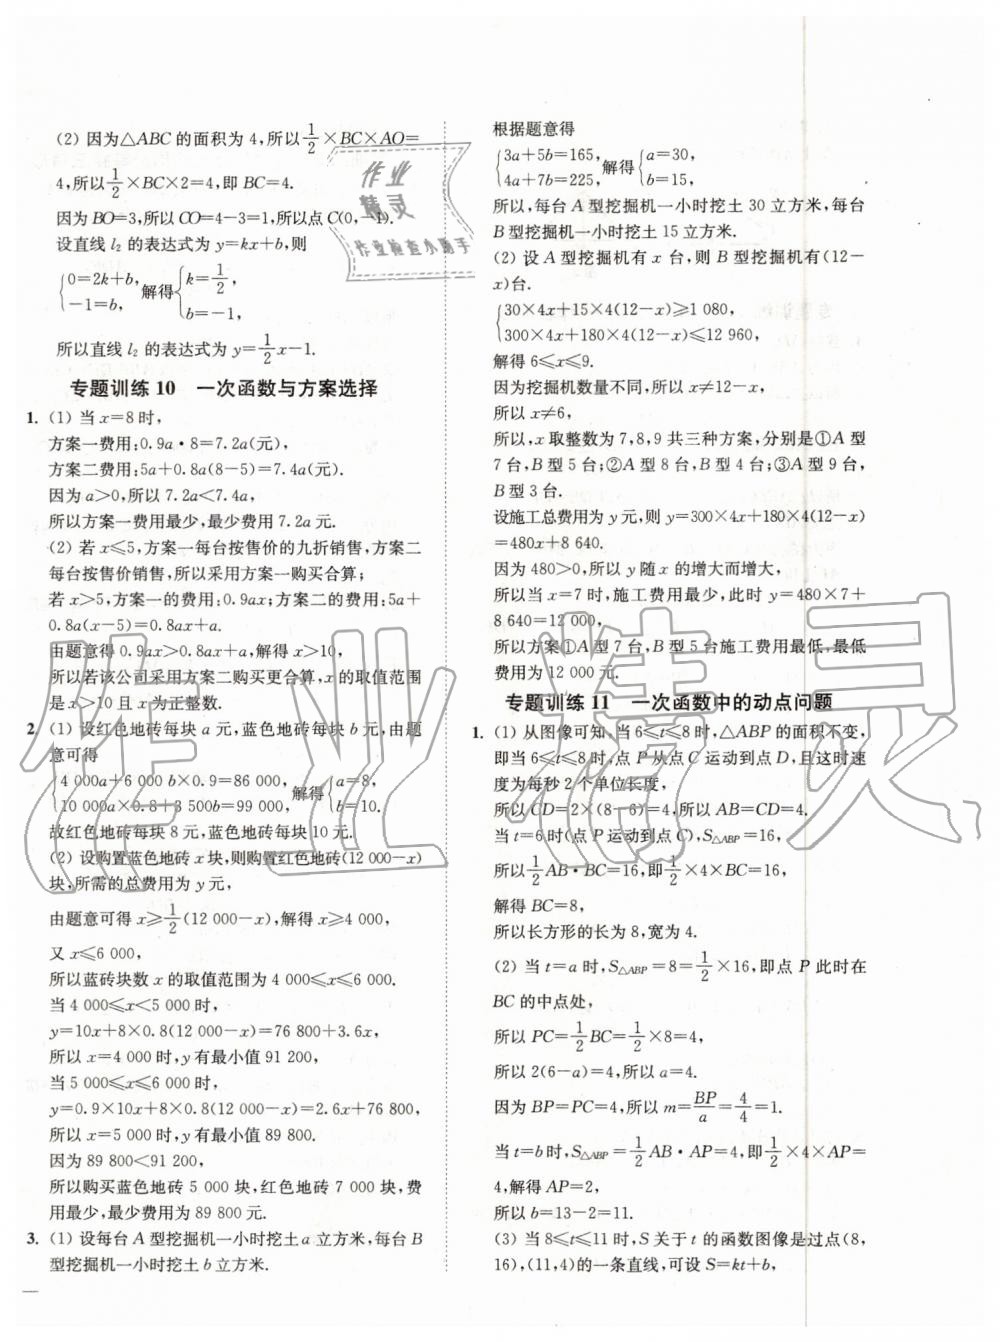 (2) 因为△ABC的面积为4,所以1/2×BC×AO=
4,所以1/2×BC×2=4,即BC=4.
因为BO=3,所以CO=4-3=1,所以点C(0,-1).
设直线l₂的表达式为y=kx+b,则
{0=2k+b, -1=b, 解得{k=1/2, b=-1,
所以直线l₂的表达式为y=1/2x-1.
专题训练10 一次函数与方案选择
1. (1) 当x=8时,
方案一费用:0.9a·8=7.2a(元),
方案二费用:5a+0.8a(8-5)=7.4a(元).
因为a>0,所以7.2a<7.4a,
所以方案一费用最少,最少费用7.2a元.
(2) 若x≤5,方案一每台按售价的九折销售,方案二
每台按售价销售,所以采用方案一购买合算;
若x>5,方案一的费用:0.9ax;方案二的费用:5a+
0.8a(x-5)=0.8ax+a.
由题意得0.9ax>0.8ax+a,解得x>10,
所以若该公司采用方案二购买更合算,x的取值范围
是x>10且x为正整数.
2. (1) 设红色地砖每块a元,蓝色地砖每块b元,由题
意可得
{4 000a+6 000b×0.9=86 000, 10 000a×0.8+3 500b=99 000, 解得{a=8, b=10.
故红色地砖每块8元,蓝色地砖每块10元.
(2) 设购置蓝色地砖x块,则购置红色地砖(12 000-x)
块,所需的总费用为y元,
由题意可得x≥1/2(12 000-x),解得x≥4 000,
又x≤6 000,
所以蓝砖块数x的取值范围为4 000≤x≤6 000.
当4 000≤x<5 000时,
y=10x+8×0.8(12 000-x)=76 800+3.6x,
所以x=4 000时,y有最小值91 200,
当5 000≤x≤6 000时,
y=0.9×10x+8×0.8(12 000-x)=2.6x+76 800,
所以x=5 000时,y有最小值89 800.
因为89 800<91 200,
所以购买蓝色地砖5 000块,红色地砖7 000块,费
用最少,最少费用为89 800元.
3. (1) 设每台A型挖掘机一小时挖土a立方米,每台B
型挖掘机一小时挖土b立方米.
根据题意得
{3a+5b=165, 4a+7b=225, 解得{a=30, b=15.
所以,每台A型挖掘机一小时挖土30立方米,每台
B型挖掘机一小时挖土15立方米.
(2) 设A型挖掘机有x台,则B型挖掘机有(12-
x)台.
{30×4x+15×4(12-x)≥1 080, 300×4x+180×4(12-x)≤12 960,
解得6≤x≤9.
因为挖掘机数量不同,所以x≠12-x,
所以x≠6,
所以,x取整数为7,8,9共三种方案,分别是①A型
7台,B型5台;②A型8台,B型4台;③A型9台,
B型3台.
设施工总费用为y元,则y=300×4x+180×4(12-x)
=480x+8 640.
因为480>0,所以y随x的增大而增大,
所以当x=7时,施工费用最少,此时y=480×7+
8 640=12 000,
所以方案①A型7台,B型5台施工费用最低,最低
费用为12 000元.
专题训练11 一次函数中的动点问题
1. (1) 从图像可知,当6≤t≤8时,△ABP的面积不变,
即当6≤t≤8时,点P从点C运动到点D,且这时速
度为每秒2个单位长度,
所以CD=2×(8-6)=4,所以AB=CD=4.
当t=6时(点P运动到点C),S△ABP=16,
所以1/2AB·BC=16,即1/2×4×BC=16,
解得BC=8,
所以长方形的长为8,宽为4.
(2) 当t=a时,S△ABP=8=1/2×16,即点P此时在
BC的中点处,
所以PC=1/2BC=1/2×8=4,
所以2(6-a)=4,所以a=4.
因为BP=PC=4,所以m=BP/a=4/4=1.
当t=b时,S△ABP=1/2AB·AP=4,即1/2×4×AP=
4,解得AP=2,
所以b=13-2=11.
(3) 当8≤t≤11时,S关于t的函数图像是过点(8,
16),(11,4)的一条直线,可设S=kt+b,
作业
精灵
作业检查小助手
作业精灵